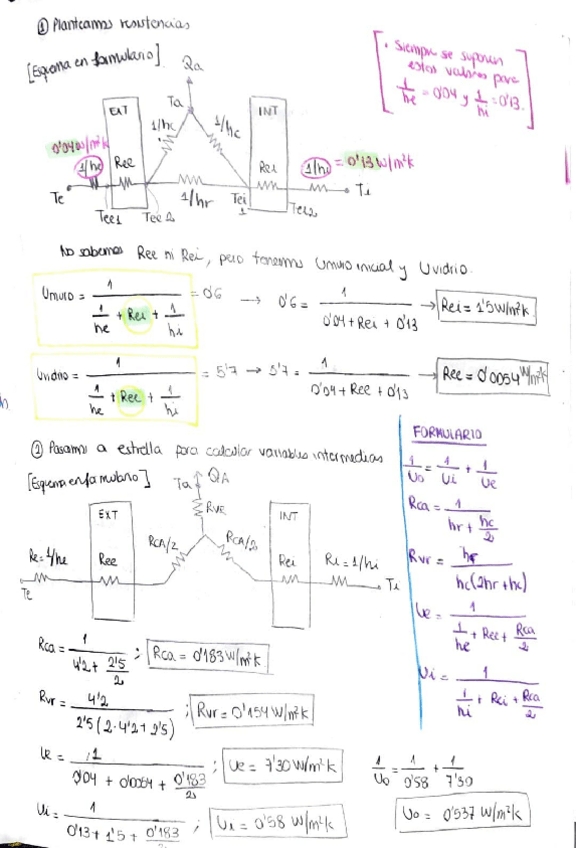 ① Planteamos resistencias
[Esquema en formulario]
• Siempre se suponen
estos valores para
1/he = 0'04 y 1/hi = 0'13.
Qa
Ta
EXT
INT
1/hc
1/hc
0'04 W/m²k
1/he
Ree
Rei
1/hi = 0'13 W/m²k
Te
1/hr
Ti
Tee1
Tee2
Tei1
Tei2
No sabemos Ree ni Rei, pero tenemos Umuro inicial y Uvidrio.
Umuro = 1 / (1/he + Rei + 1/hi) = 0'6 → 0'6 = 1 / (0'04 + Rei + 0'13) → Rei = 1'5 W/m²k
Uvidrio = 1 / (1/he + Ree + 1/hi) = 5'7 → 5'7 = 1 / (0'04 + Ree + 0'13) → Ree = 0'0054 W/m²k
② Pasamos a estrella para calcular variables intermedias
[Esquema en formulario]
Ta
QA
RVR
EXT
INT
Re = 1/he
Ree
RCA/2
RCA/2
Rei
Ri = 1/hi
Te
Ti
FORMULARIO
1/Uo = 1/Ui + 1/Ue
Rca = 1 / (hr + hc/2)
Rvr = hr / (hc(2hr + hc))
Ue = 1 / (1/he + Ree + Rca/2)
Ui = 1 / (1/hi + Rei + Rca/2)
Rca = 1 / (4'2 + 2'5/2) ; Rca = 0'183 W/m²k
Rvr = 4'2 / (2'5 (2·4'2 + 2'5)) ; Rvr = 0'154 W/m²k
Ue = 1 / (0'04 + 0'0054 + 0'183/2) ; Ue = 7'30 W/m²k
1/Uo = 1/0'58 + 1/7'30
Ui = 1 / (0'13 + 1'5 + 0'183/2) ; Ui = 0'58 W/m²k
Uo = 0'537 W/m²k